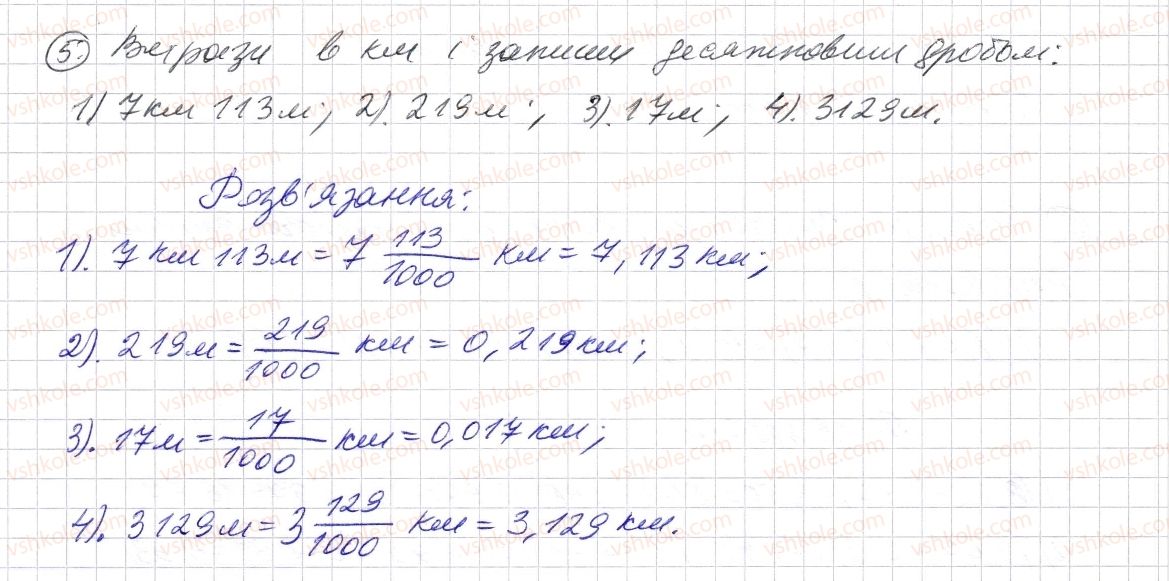 5). Вирази в км і запиши десятковим дробом:
1) 7км 113м; 2). 219м; 3). 17м; 4). 3129м.
Розв'язання:
1). 7 км 113м = 7 113/1000 км = 7,113км;
2). 219м = 219/1000 км = 0,219км;
3). 17м = 17/1000 км = 0,017км;
4). 3129м = 3 129/1000 км = 3,129 км.
vshkole.com